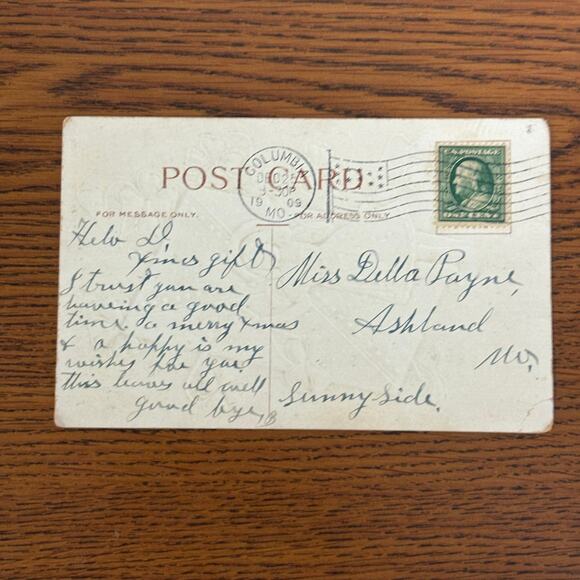 POST CARD
COLUMBIA
DEC 25
3-30P
19 09
MO.
U.S. POSTAGE
ONE CENT
FOR MESSAGE ONLY.
FOR ADDRESS ONLY.
Helo D,
Xmas gift
I trust you are
haveing a good
time. a merry xmas
& a happy is my
wishes for you.
this leaves all well
good bye,
B
Miss Della Payne,
Ashland
Mo.
Sunny Side.